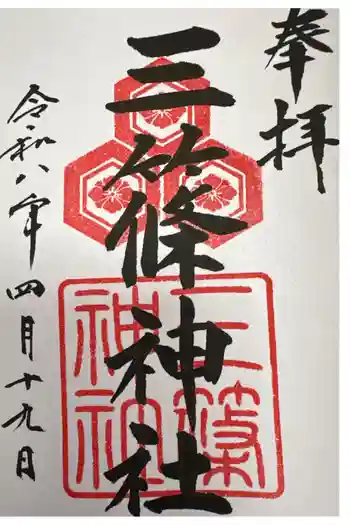 奉拝
三篠神社
三篠
神社
令和八年四月十九日